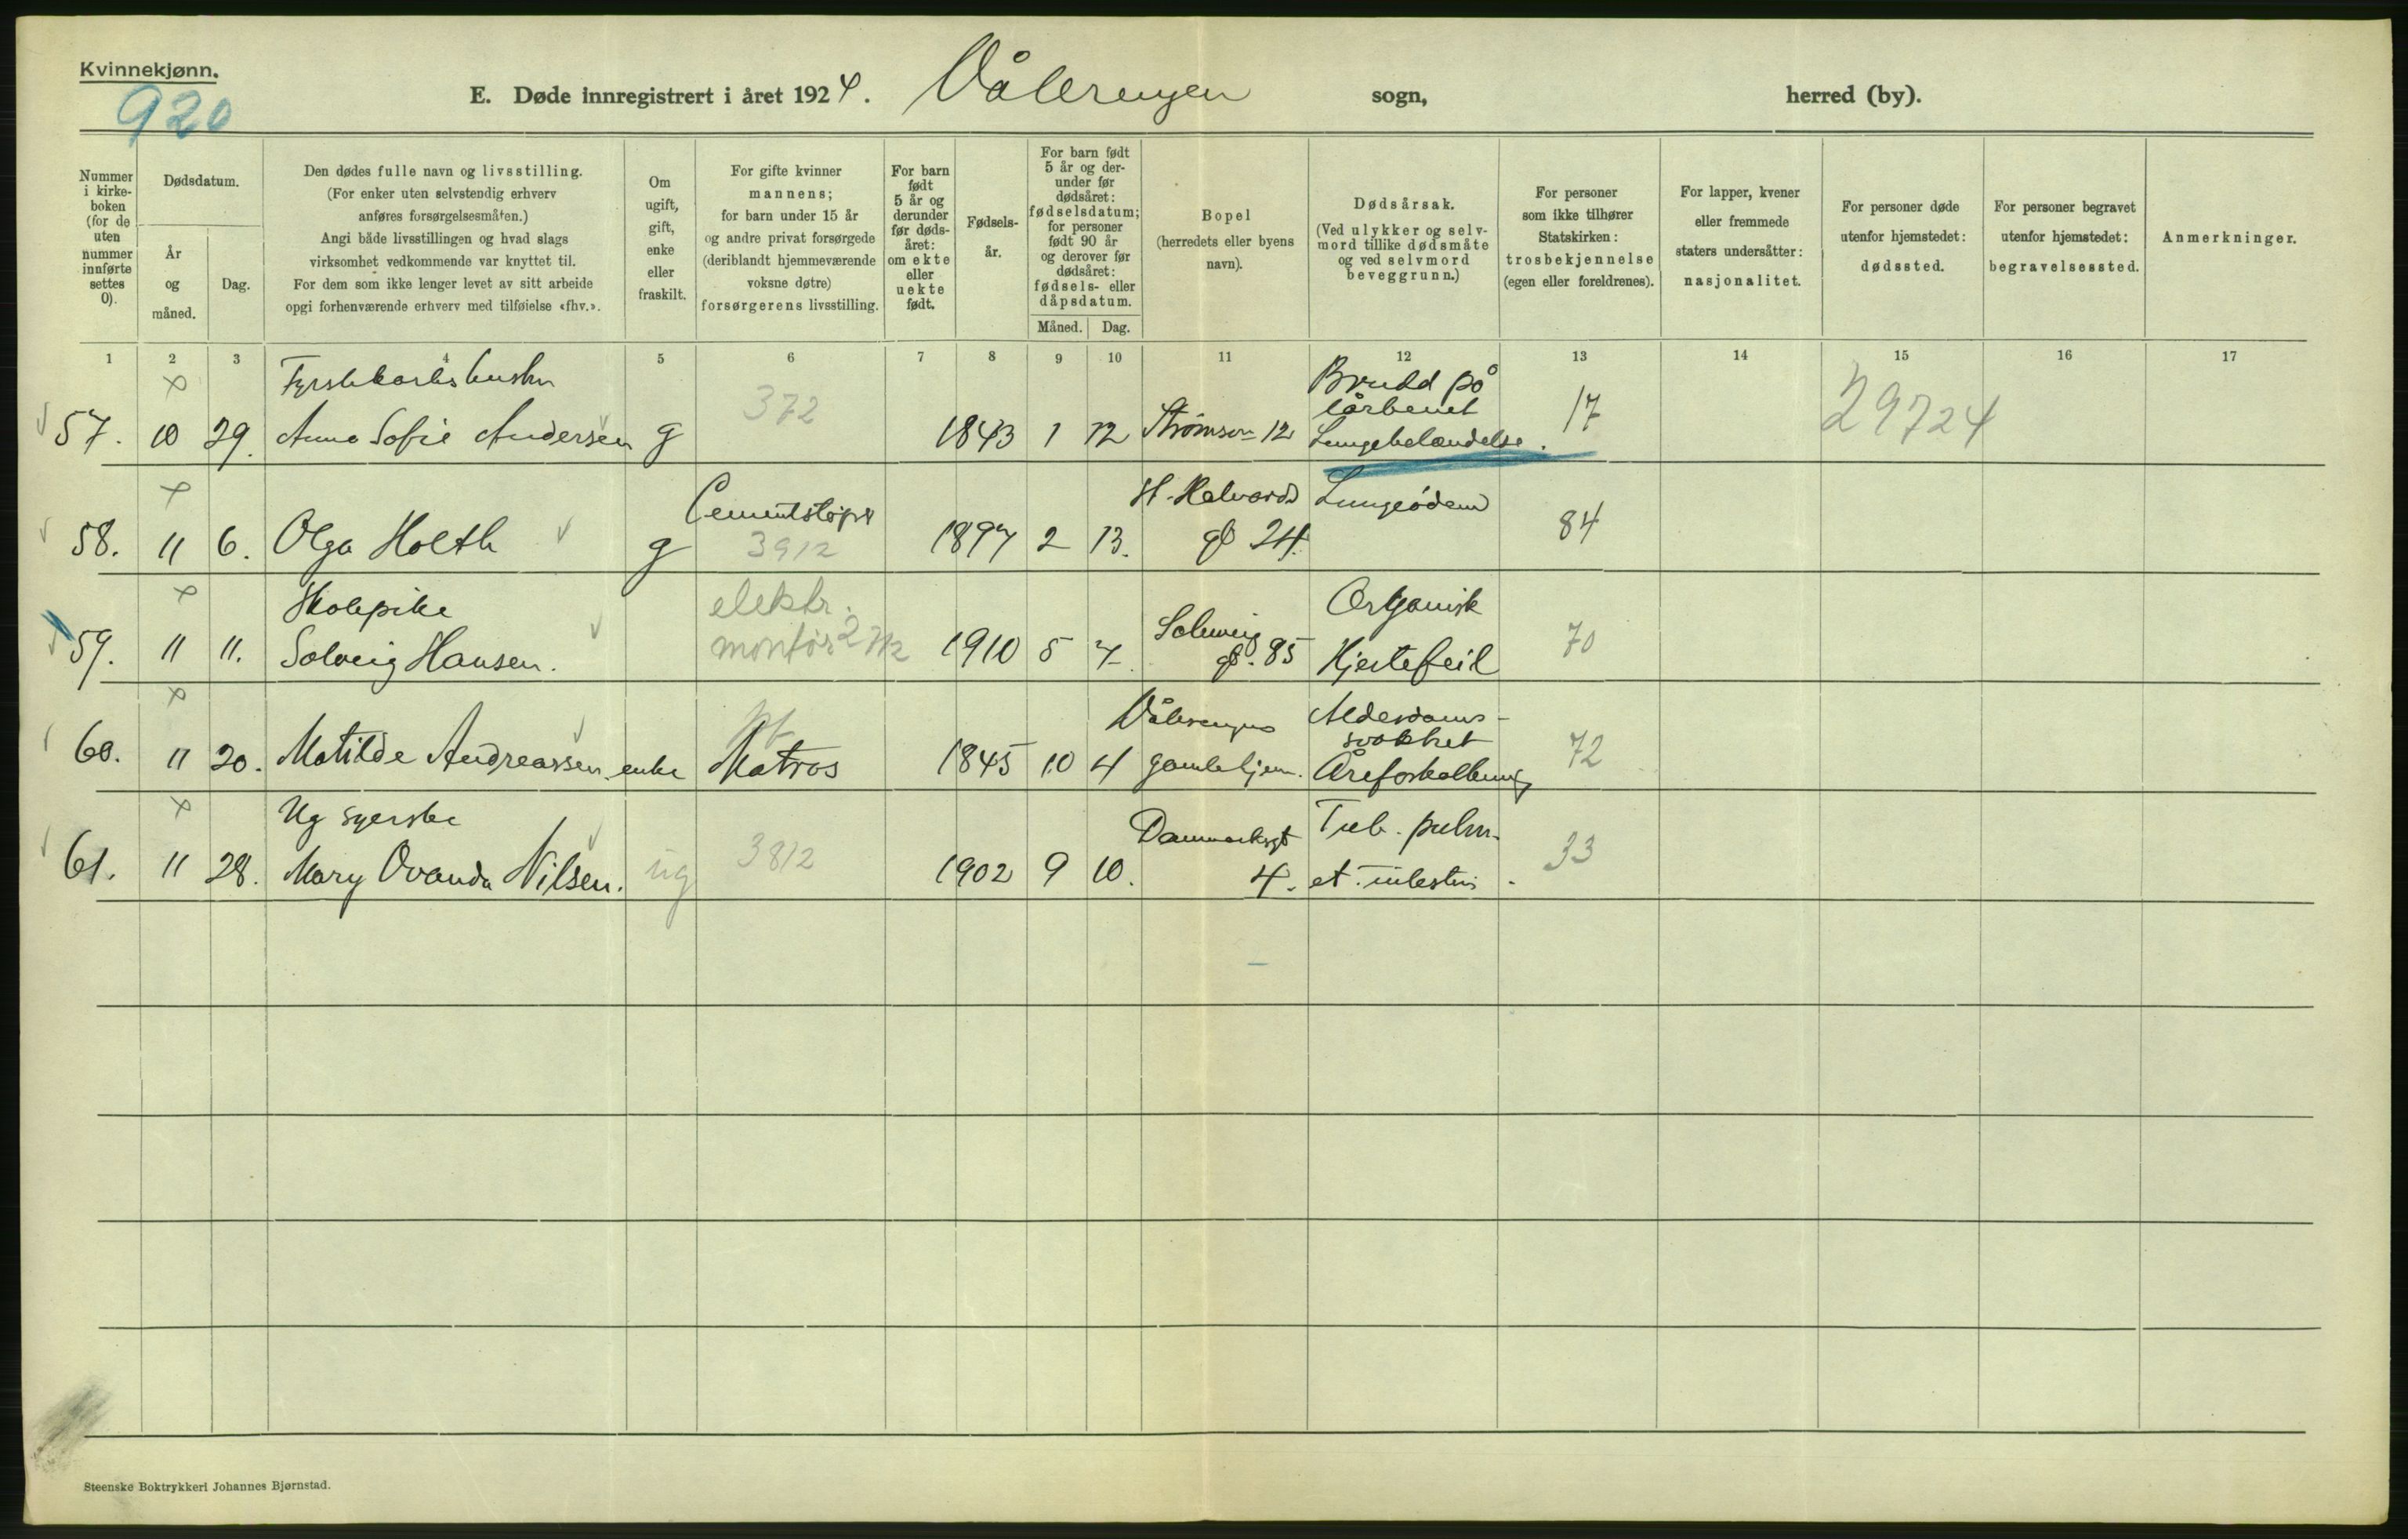 Kvinnekjønn.
920
E. Døde innregistrert i året 1924. Vålerengen sogn, herred (by).
Nummer i kirkeboken (for de uten nummer innførte settes 0).
Dødsdatum.
År og måned.
Dag.
Den dødes fulle navn og livsstilling.
(For enker uten selvstendig erhverv anføres forsørgelsesmåten.)
Angi både livsstillingen og hvad slags virksomhet vedkommende var knyttet til.
For dem som ikke lenger levet av sitt arbeide opgi forhenværende erhverv med tilføielse «fhv.».
Om ugift, gift, enke eller fraskilt.
For gifte kvinner mannens;
for barn under 15 år og andre privat forsørgede (deriblandt hjemmeværende voksne døtre) forsørgerens livsstilling.
For barn født 5 år og derunder før dødsåret: om ekte eller uekte født.
Fødselsår.
For barn født 5 år og derunder før dødsåret: fødselsdatum; for personer født 90 år og derover før dødsåret: fødsels- eller dåpsdatum.
Måned. Dag.
Bopel (herredets eller byens navn).
Dødsårsak.
(Ved ulykker og selvmord tillike dødsmåte og ved selvmord beveggrunn.)
For personer som ikke tilhører Statskirken: trosbekjennelse (egen eller foreldrenes).
For lapper, kvener eller fremmede staters undersåtter: nasjonalitet.
For personer døde utenfor hjemstedet: dødssted.
For personer begravet utenfor hjemstedet: begravelsessted.
Anmerkninger.
1 2 3 4 5 6 7 8 9 10 11 12 13 14 15 16 17
Brudd på
lårbenet
57. 10 29. Anna Sofie Andersen g 372 1843 1 12 12 Lungebetændelse. 17 29724
Cementstøper H. Halvards Lungeödem
58. 11 6. Olga Holth g 3912 1897 2 13. gt 24. 84
Skolepike elektr. Organisk
59. 11 11. Solveig Hansen. montör 1910 5 7. Solveig gt. 85 Hjertefeil 70
Vålerengens Alderdoms-
svakhet
60. 11 20. Matilde Andreassen enke Matros 1845 10 4 gamlehjem. Åreforkalkning 72
Ug syerske Danmarksgt Tub. pulm.
61. 11 28. Mary Ovanda Nilsen. ug 3812 1902 9 10. 4. et intestin. 33
Steenske Boktrykkeri Johannes Bjørnstad.